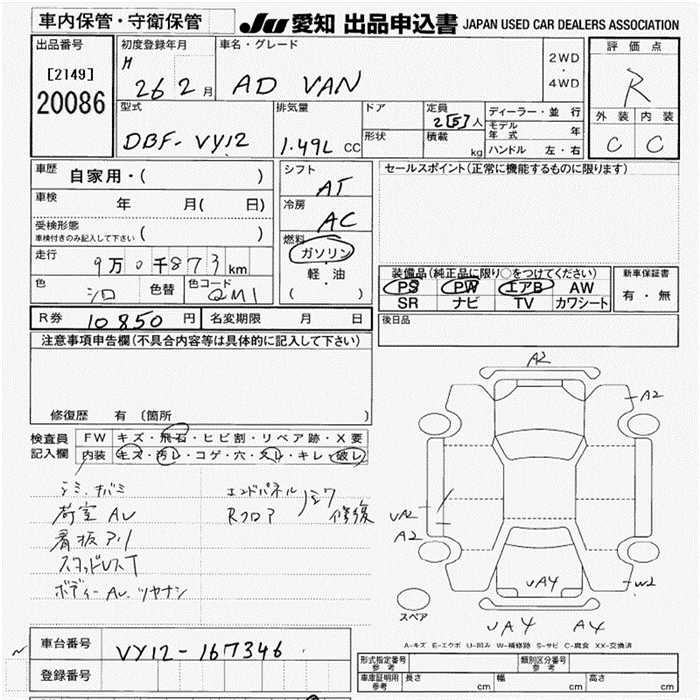 車内保管・守衛保管
JU 愛知 出品申込書 JAPAN USED CAR DEALERS ASSOCIATION
出品番号
[2149]
20086
初度登録年月
H
26 2 月
車名・グレード
AD VAN
2WD
・
4WD
評価点
R
外装 内装
C C
型式
DBF-VY12
排気量
1.49L CC
ドア
形状
定員
2[5]人
積載
kg
ディーラー・並行
モデル年式 年
ハンドル 左・右
車歴
自家用・( )
車検 年 月( 日)
受検形態
車検付きのみ記入して下さい ( )
走行
9万0千873km
色
シロ
色替
色コード
QM1
シフト
AT
冷房
AC
燃料
ガソリン
軽・油
( )
セールスポイント(正常に機能するものに限ります)
装備品(純正品に限り○をつけてください)
PS PW エアB AW
SR ナビ TV カワシート
新車保証書
有・無
R券 10850 円
名変期限 月 日
後日品
注意事項申告欄(不具合内容等は具体的に記入して下さい)
修復歴 有 〔箇所 〕
検査員
記入欄
FW キズ・飛石・ヒビ割・リペア跡・X要
内装 キズ・汚レ・コゲ・穴・スレ・キレ・破レ
荷室 AU
看板アリ
スタッドレスT
ボディーAU.ツヤナシ
エンドパネル
Rフロア
修復
A2
A2
UA2
A2
UA4
W2
UA4 A4
スペア
A-キズ E-エクボ U-凹み W-補修跡 S-サビ C-腐食 XX-交換済
車台番号
VY12-167346
登録番号
形式指定番号
参考
類別区分番号
参考
車庫証明用
参考
長さ cm
幅 cm
高さ cm